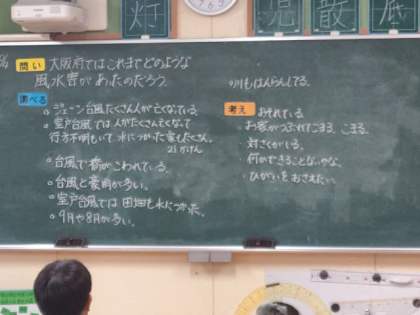 問い 大阪府ではこれまでどのような
風水害があったのだろう。
調べる
。ジェーン台風たくさん人が亡くなっている。
。室戸台風では人がたくさん亡くなって
行方不明もいて水につかった家もたくさん。
。台風で橋がこわれている。
。台風と豪雨が多い。
。室戸台風では田畑も水につかった。
。9月や8月が多い。
。川もはんらんしてる。
考え
。おそれている
。お家がつぶれてこまる、こまる。
。対さくがしてる。
。何かできることないかな。
。ひがいをおさえたい。
灯
児
散
底